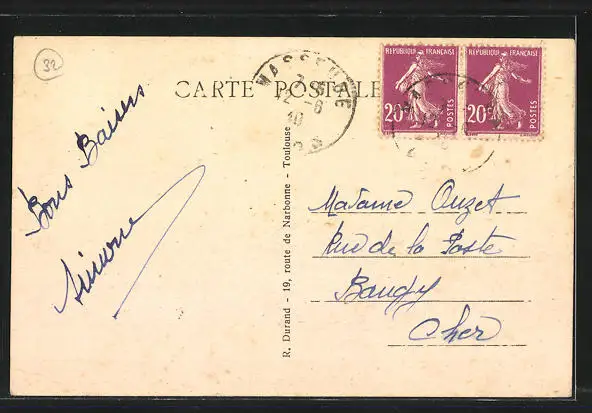 32
CARTE POSTALE
MASSEUBE
12 -6
40
REPUBLIQUE FRANÇAISE
20c
POSTES
REPUBLIQUE FRANÇAISE
20c
POSTES
Bons Baisers
Simone
R. Durand - 19, route de Narbonne - Toulouse
Madame Ouzet
Rue de la Poste
Baugy
Cher